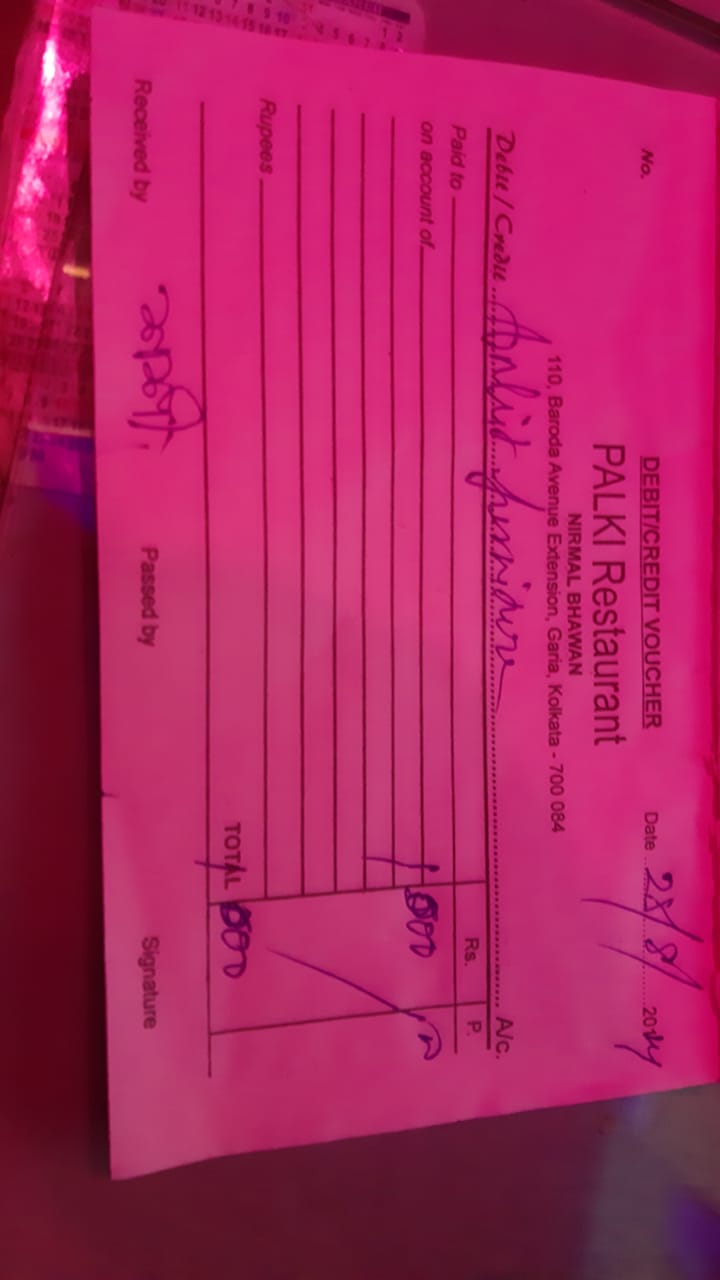 DEBIT/CREDIT VOUCHER
No. Date 28/8/ 2024
PALKI Restaurant
NIRMAL BHAWAN
110, Baroda Avenue Extension, Garia, Kolkata - 700 084
Debit / Credit furniture A/c.
Paid to Rs. P.
on account of 1000
Rupees
TOTAL 1000
Received by Passed by Signature